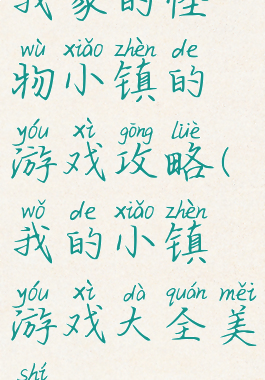 我家的怪
wù xiǎo zhèn de
物小镇的
yóu xì gōng lüè
游戏攻略(
wǒ de xiǎo zhèn
我的小镇
yóu xì dà quán měi
游戏大全美
shí